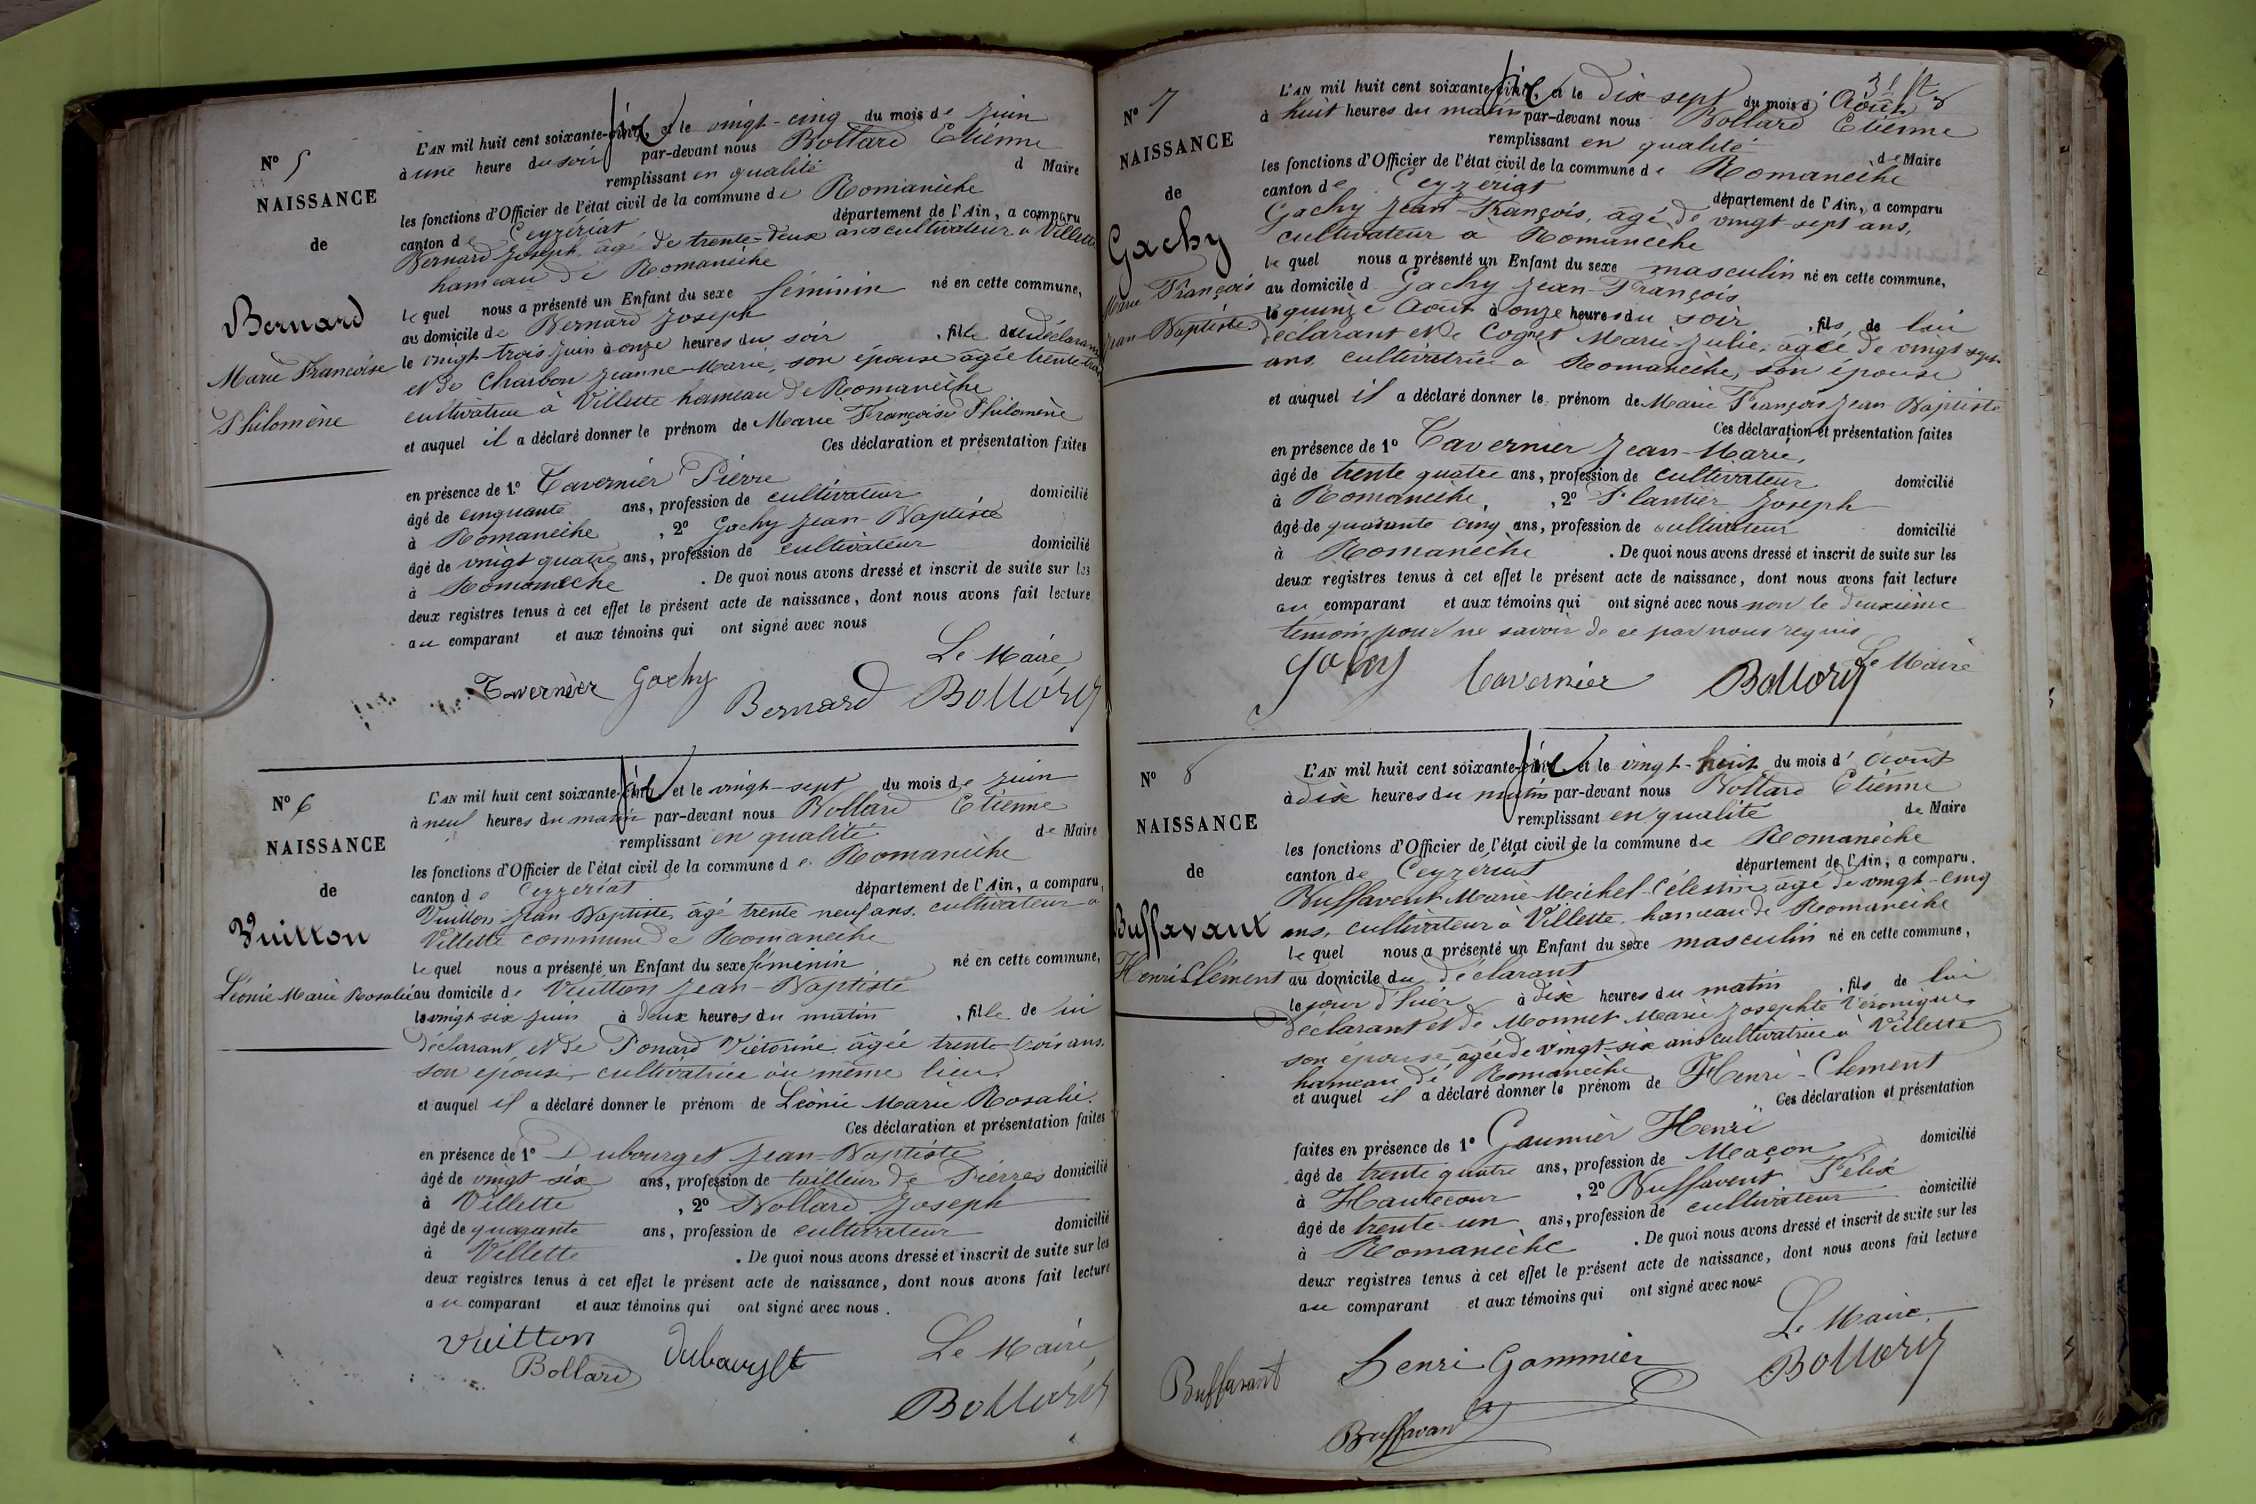 N° 5
NAISSANCE
de
Bernard
Marie Françoise
Philomène
L'AN mil huit cent soixante-six et le vingt-cinq du mois de Juin
à une heure du soir par-devant nous Bollard Etienne
remplissant en qualité d Maire
les fonctions d'Officier de l'état civil de la commune de Romanèche
canton de Ceyzériat département de l'Ain, a comparu
Bernard Joseph, âgé de trente-deux ans cultivateur à Villette
hameau de Romanèche
lequel nous a présenté un Enfant du sexe féminin né en cette commune,
au domicile de Bernard Joseph
le vingt-trois juin à onze heures du soir , fille du déclarant
et de Charbon Jeanne-Marie, son épouse âgée trente-trois
cultivatrice à Villette hameau de Romanèche
et auquel il a déclaré donner le prénom de Marie Françoise Philomène
Ces déclaration et présentation faites
en présence de 1° Tavernier Pierre
âgé de cinquante ans, profession de cultivateur domicilié
à Romanèche , 2° Gachy Jean-Baptiste
âgé de vingt quatre ans, profession de cultivateur domicilié
à Romanèche . De quoi nous avons dressé et inscrit de suite sur les
deux registres tenus à cet effet le présent acte de naissance, dont nous avons fait lecture
au comparant et aux témoins qui ont signé avec nous
Le Maire
Tavernier Gachy Bernard Bollard
N° 6
NAISSANCE
de
Vuitton
Léonie Marie Rosalie
L'AN mil huit cent soixante-six et le vingt-sept du mois de Juin
à neuf heures du matin par-devant nous Bollard Etienne
remplissant en qualité de Maire
les fonctions d'Officier de l'état civil de la commune de Romanèche
canton de Ceyzeriat département de l'Ain, a comparu,
Vuitton Jean Baptiste âgé trente neuf ans, cultivateur à
Villette commune de Romanèche
lequel nous a présenté un Enfant du sexe féminin né en cette commune,
au domicile de Vuitton Jean-Baptiste
le vingt-six juin à deux heures du matin , fille de lui
déclarant, et de Ponard Victorine, âgée trente-trois ans,
son épouse cultivatrice au même lieu,
et auquel il a déclaré donner le prénom de Léonie Marie Rosalie.
Ces déclaration et présentation faites
en présence de 1° Dubourget Jean-Baptiste
âgé de vingt-six ans, profession de tailleur de Pierres domicilié
à Villette , 2° Bollard Joseph
âgé de quarante ans, profession de cultivateur domicilié
à Villette . De quoi nous avons dressé et inscrit de suite sur les
deux registres tenus à cet effet le présent acte de naissance, dont nous avons fait lecture
au comparant et aux témoins qui ont signé avec nous.
Vuitton Dubourget Le Maire,
Bollard
Bollard
N° 7
NAISSANCE
de
Gachy
Marie François
Jean-Baptiste
L'AN mil huit cent soixante-six et le dix-sept du mois d'Août
à huit heures du matin par-devant nous Bollard Etienne
remplissant en qualité de Maire
les fonctions d'Officier de l'état civil de la commune de Romanèche
canton de Ceyzériat département de l'Ain, a comparu
Gachy Jean-François, âgé de vingt-sept ans,
cultivateur à Romanèche
lequel nous a présenté un Enfant du sexe masculin né en cette commune,
au domicile d Gachy Jean-François
le quinze Août à onze heures du soir , fils de lui
déclarant et de Cognet Marie-Julie, âgée de vingt-sept
ans, cultivatrice à Romanèche, son épouse
et auquel il a déclaré donner le prénom de Marie François Jean-Baptiste
Ces déclaration et présentation faites
en présence de 1° Tavernier Jean-Marie,
âgé de trente quatre ans, profession de cultivateur domicilié
à Romanèche , 2° Plantier Joseph
âgé de quarante cinq ans, profession de cultivateur domicilié
à Romanèche . De quoi nous avons dressé et inscrit de suite sur les
deux registres tenus à cet effet le présent acte de naissance, dont nous avons fait lecture
au comparant et aux témoins qui ont signé avec nous non le deuxième
témoin pour ne savoir de ce par nous requis
Le Maire
Gachy Tavernier Bollard
N° 8
NAISSANCE
de
Buffavant
Henri Clément
L'AN mil huit cent soixante-six et le vingt-huit du mois d'Août
à dix heures du matin par-devant nous Bollard Etienne
remplissant en qualité de Maire
les fonctions d'Officier de l'état civil de la commune de Romanèche
canton de Ceyzériat département de l'Ain, a comparu.
Buffavent Marie-Michel-Célestin, âgé de vingt-cinq
ans, cultivateur à Villette, hameau de Romanèche
lequel nous a présenté un Enfant du sexe masculin né en cette commune,
au domicile du déclarant
le jour d'hier à dix heures du matin , fils de lui
déclarant et de Monnet Marie Josephte Véronique
son épouse âgée de vingt-six ans cultivatrice à Villette
hameau de Romanèche
et auquel il a déclaré donner le prénom de Henri-Clement
Ces déclaration et présentation
faites en présence de 1° Gaumier Henri
âgé de trente quatre ans, profession de Maçon domicilié
à Hautecour , 2° Buffavent Félix
âgé de trente-un ans, profession de cultivateur domicilié
à Romanèche . De quoi nous avons dressé et inscrit de suite sur les
deux registres tenus à cet effet le présent acte de naissance, dont nous avons fait lecture
au comparant et aux témoins qui ont signé avec nous
Le Maire,
Buffavant henri Gommier Bollard
Buffavant